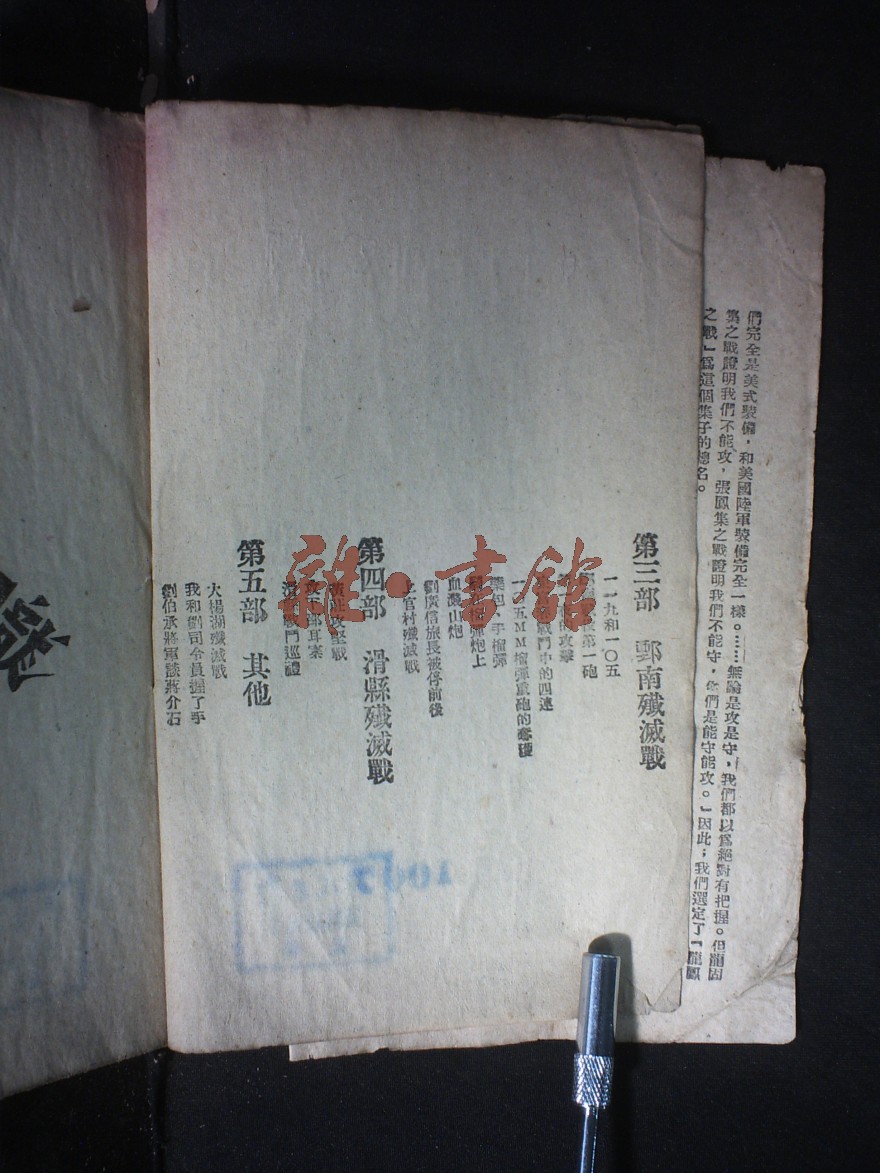 們完全是美式裝備，和美國陸軍裝備完全一樣。……無論是攻是守，我們都以爲絕對有把握。但龍固
集之戰證明我們不能攻，張鳳集之戰證明我們不能守，你們是能守能攻。」因此；我們選定了「龍鳳
之戰」爲這個集子的總名。
第三部　鄄南殲滅戰
一一九和一〇五
第一砲
攻擊
戰鬥中的四連
一〇五MM榴彈重砲的奪獲
手榴彈
彈炮上
血濺山炮
劉廣信旅長被俘前後
上官村殲滅戰
第四部　滑縣殲滅戰
攻堅戰
耳寨
戰鬥巡禮
第五部　其他
大楊湖殲滅戰
我和劉司令員握了手
劉伯承將軍談蔣介石
雜·書館
1007